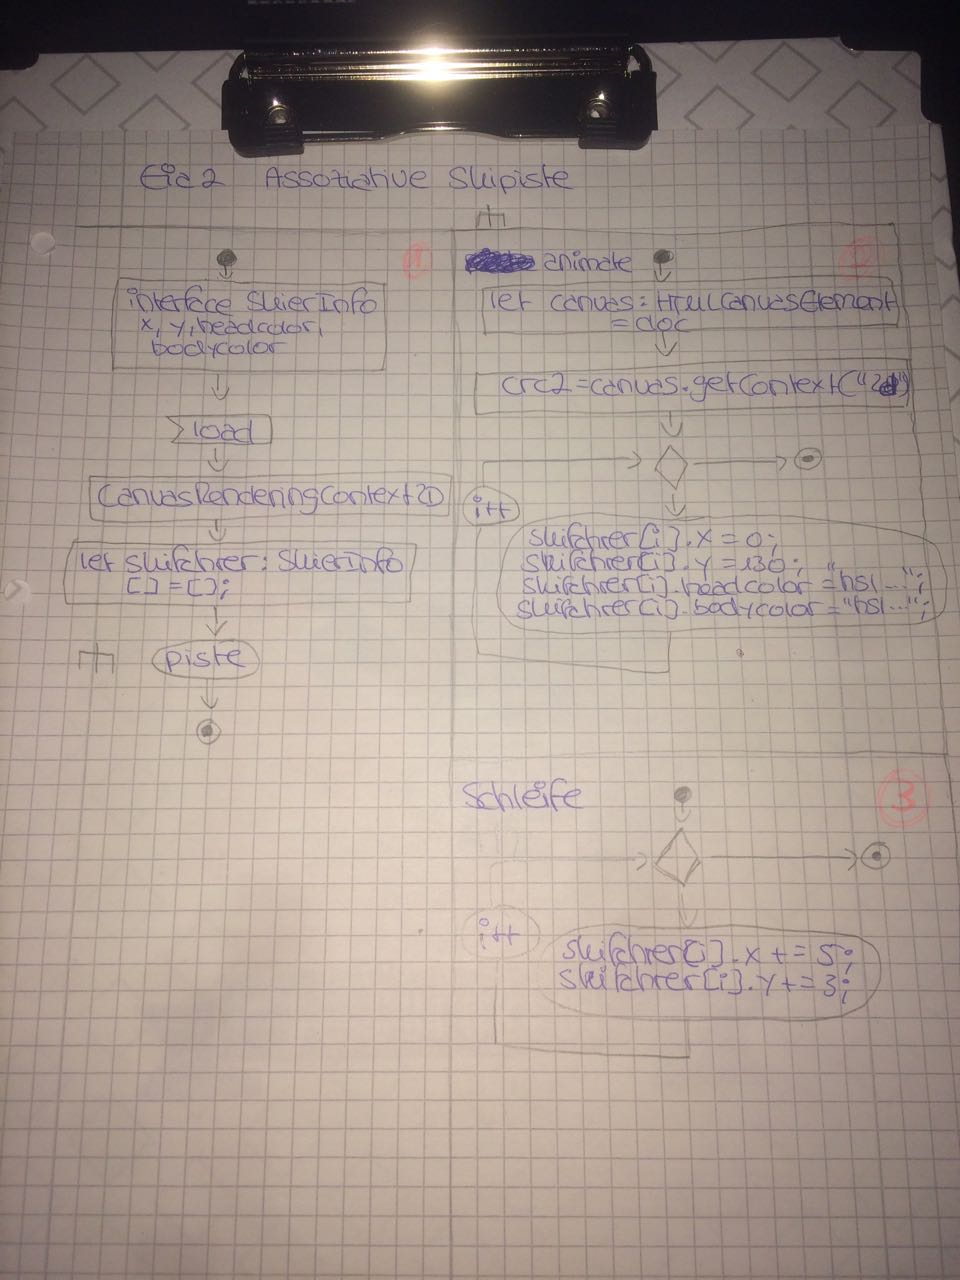 Eia2 Assoziative Skipiste
1
interface SkierInfo
x, y, headcolor,
bodycolor
load
CanvasRenderingContext2D
let skifahrer: SkierInfo
[] = [];
piste
animate
2
let canvas: HTMLCanvasElement
= doc
crc2=canvas.getContext("2d")
i++
skifahrer[i].x = 0;
skifahrer[i].y =130;
skifahrer[i].headcolor ="hsl...";
skifahrer[i].bodycolor="hsl...";
Schleife
3
i++
skifahrer[i].x += 5;
skifahrer[i].y+= 3;